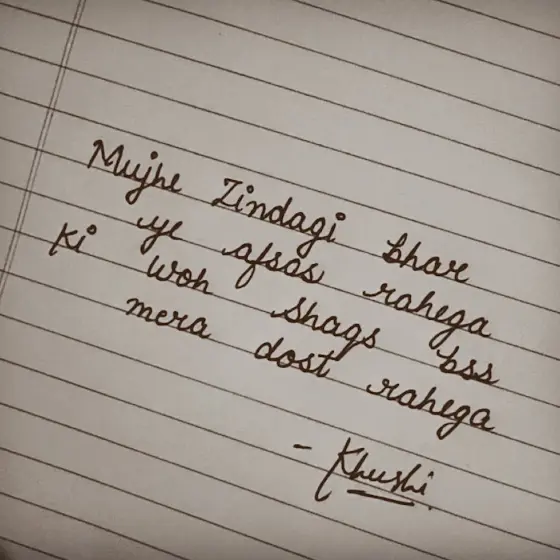 Mujhe Zindagi bhar
ye afsos rahega
Ki woh shaqs bss
mera dost rahega
- Khushi.